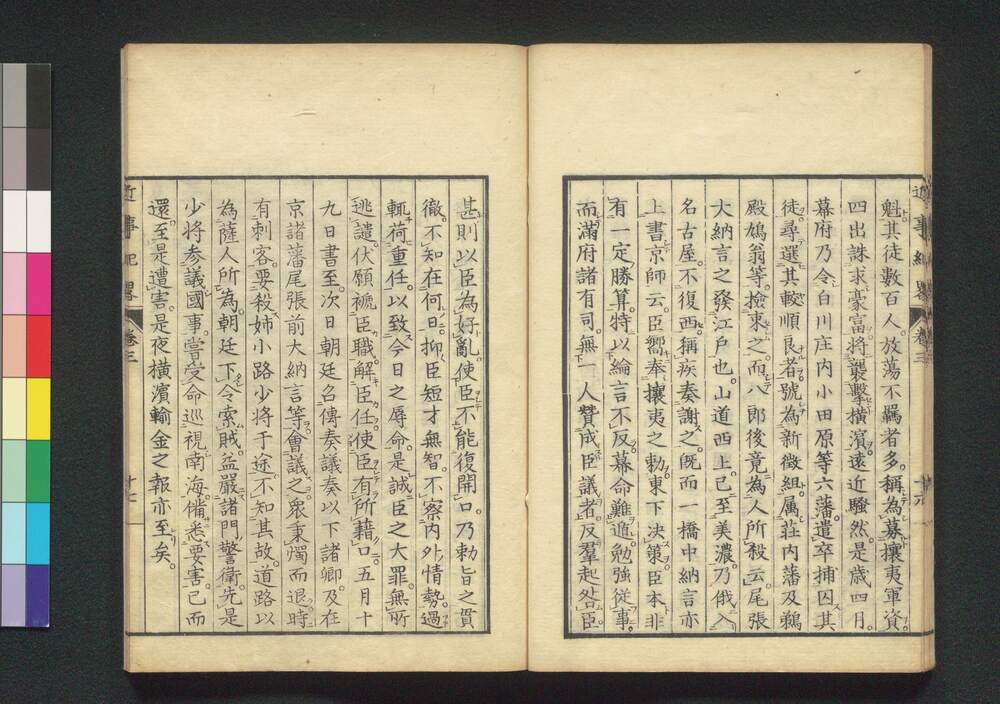 魁其徒數百人。放蕩不羈者多。稱為募攘夷軍資。
四出誅求豪富。將襲擊橫濱。遠近騷然。是歲四月。
幕府乃令白川庄内小田原等六藩遣卒捕囚其
徒。尋選其較順良者。號為新徵組。属莊内藩及鵜
殿鳩翁等。撿束之。而八郎後竟為人所殺云。尾張
大納言之發江戶也。山道西上。已至美濃。乃俄入
名古屋。不復西。稱疾奏謝之。既而一橋中納言亦
上書京師云。臣嚮奉攘夷之勅。東下決策。臣本非
有一定勝算。特以綸言不反。幕命難遁。勉強從事。
而滿府諸有司。無一人贊成臣議者。反羣起咎臣
甚則以臣為好亂。使臣不能復開口。乃勅旨之貫
徹。不知在何日。抑臣短才無智。不察内外情勢。過
輒荷重任。以致今日之辱命。是誠臣之大罪。無所
逃譴。伏願褫臣職。解臣任。使臣有所藉口。五月十
九日書至。次日朝廷召傳奏議奏以下諸卿。及在
京諸藩尾張前大納言等會議之。衆秉燭而退。時
有刺客。要殺姉小路少將于途。不知其故。道路以
為薩人所為。朝廷下令索賊。益嚴諸門警衛。先是
少將參議國事。嘗受命巡視南海。備悉要害。已而
還。至是遭害。是夜橫濱輸金之報亦至矣。
近事紀畧
卷三